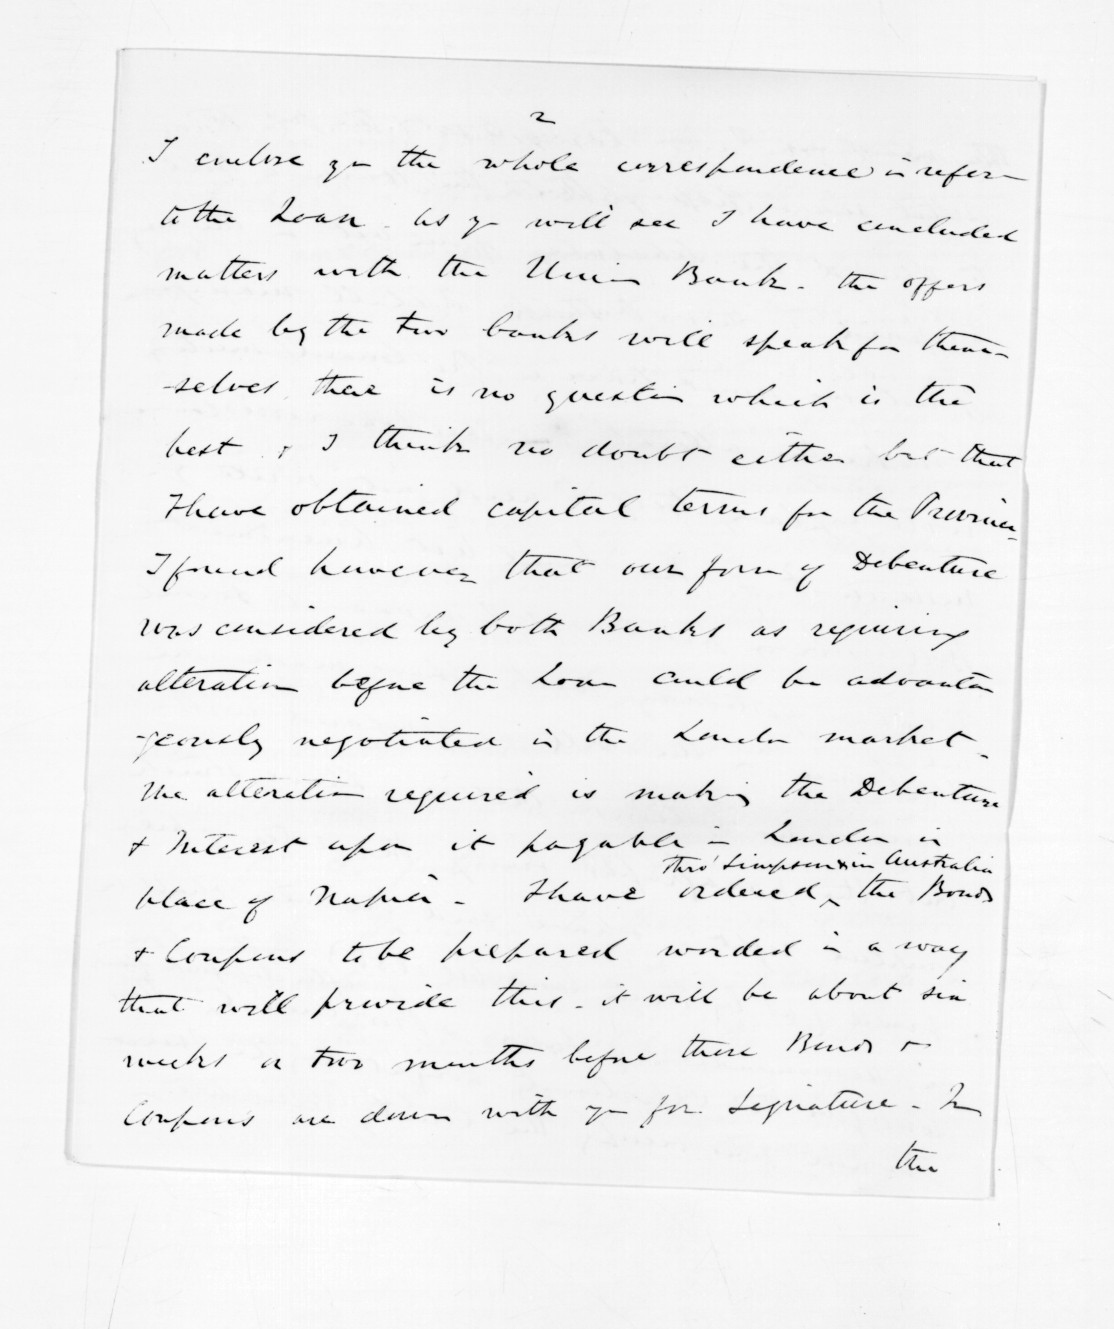 2
I enclose yu the whole correspondence in refer-
to the Loan - as yu will see I have concluded
matters with the Union Bank - the offers
made by the two banks will speak for them-
-selves, there is no question which is the
best & I think no doubt either but that
I have obtained capital terms for the Province -
I found however that our form of Debenture
was considered by both Banks as requiring
alteration before the Loan could be advanta
-geously negotiated in the London market -
The alteration required is making the Debenture
& Interest upon it payable in London in
thro' Simpson in Australia
place of Napier - I have ordered ^ the Bonds
& Coupons to be prepared worded in a way
that will provide this - it will be about six
weeks or two months before these Bonds &
Coupons are down with yu for Signature - In
the